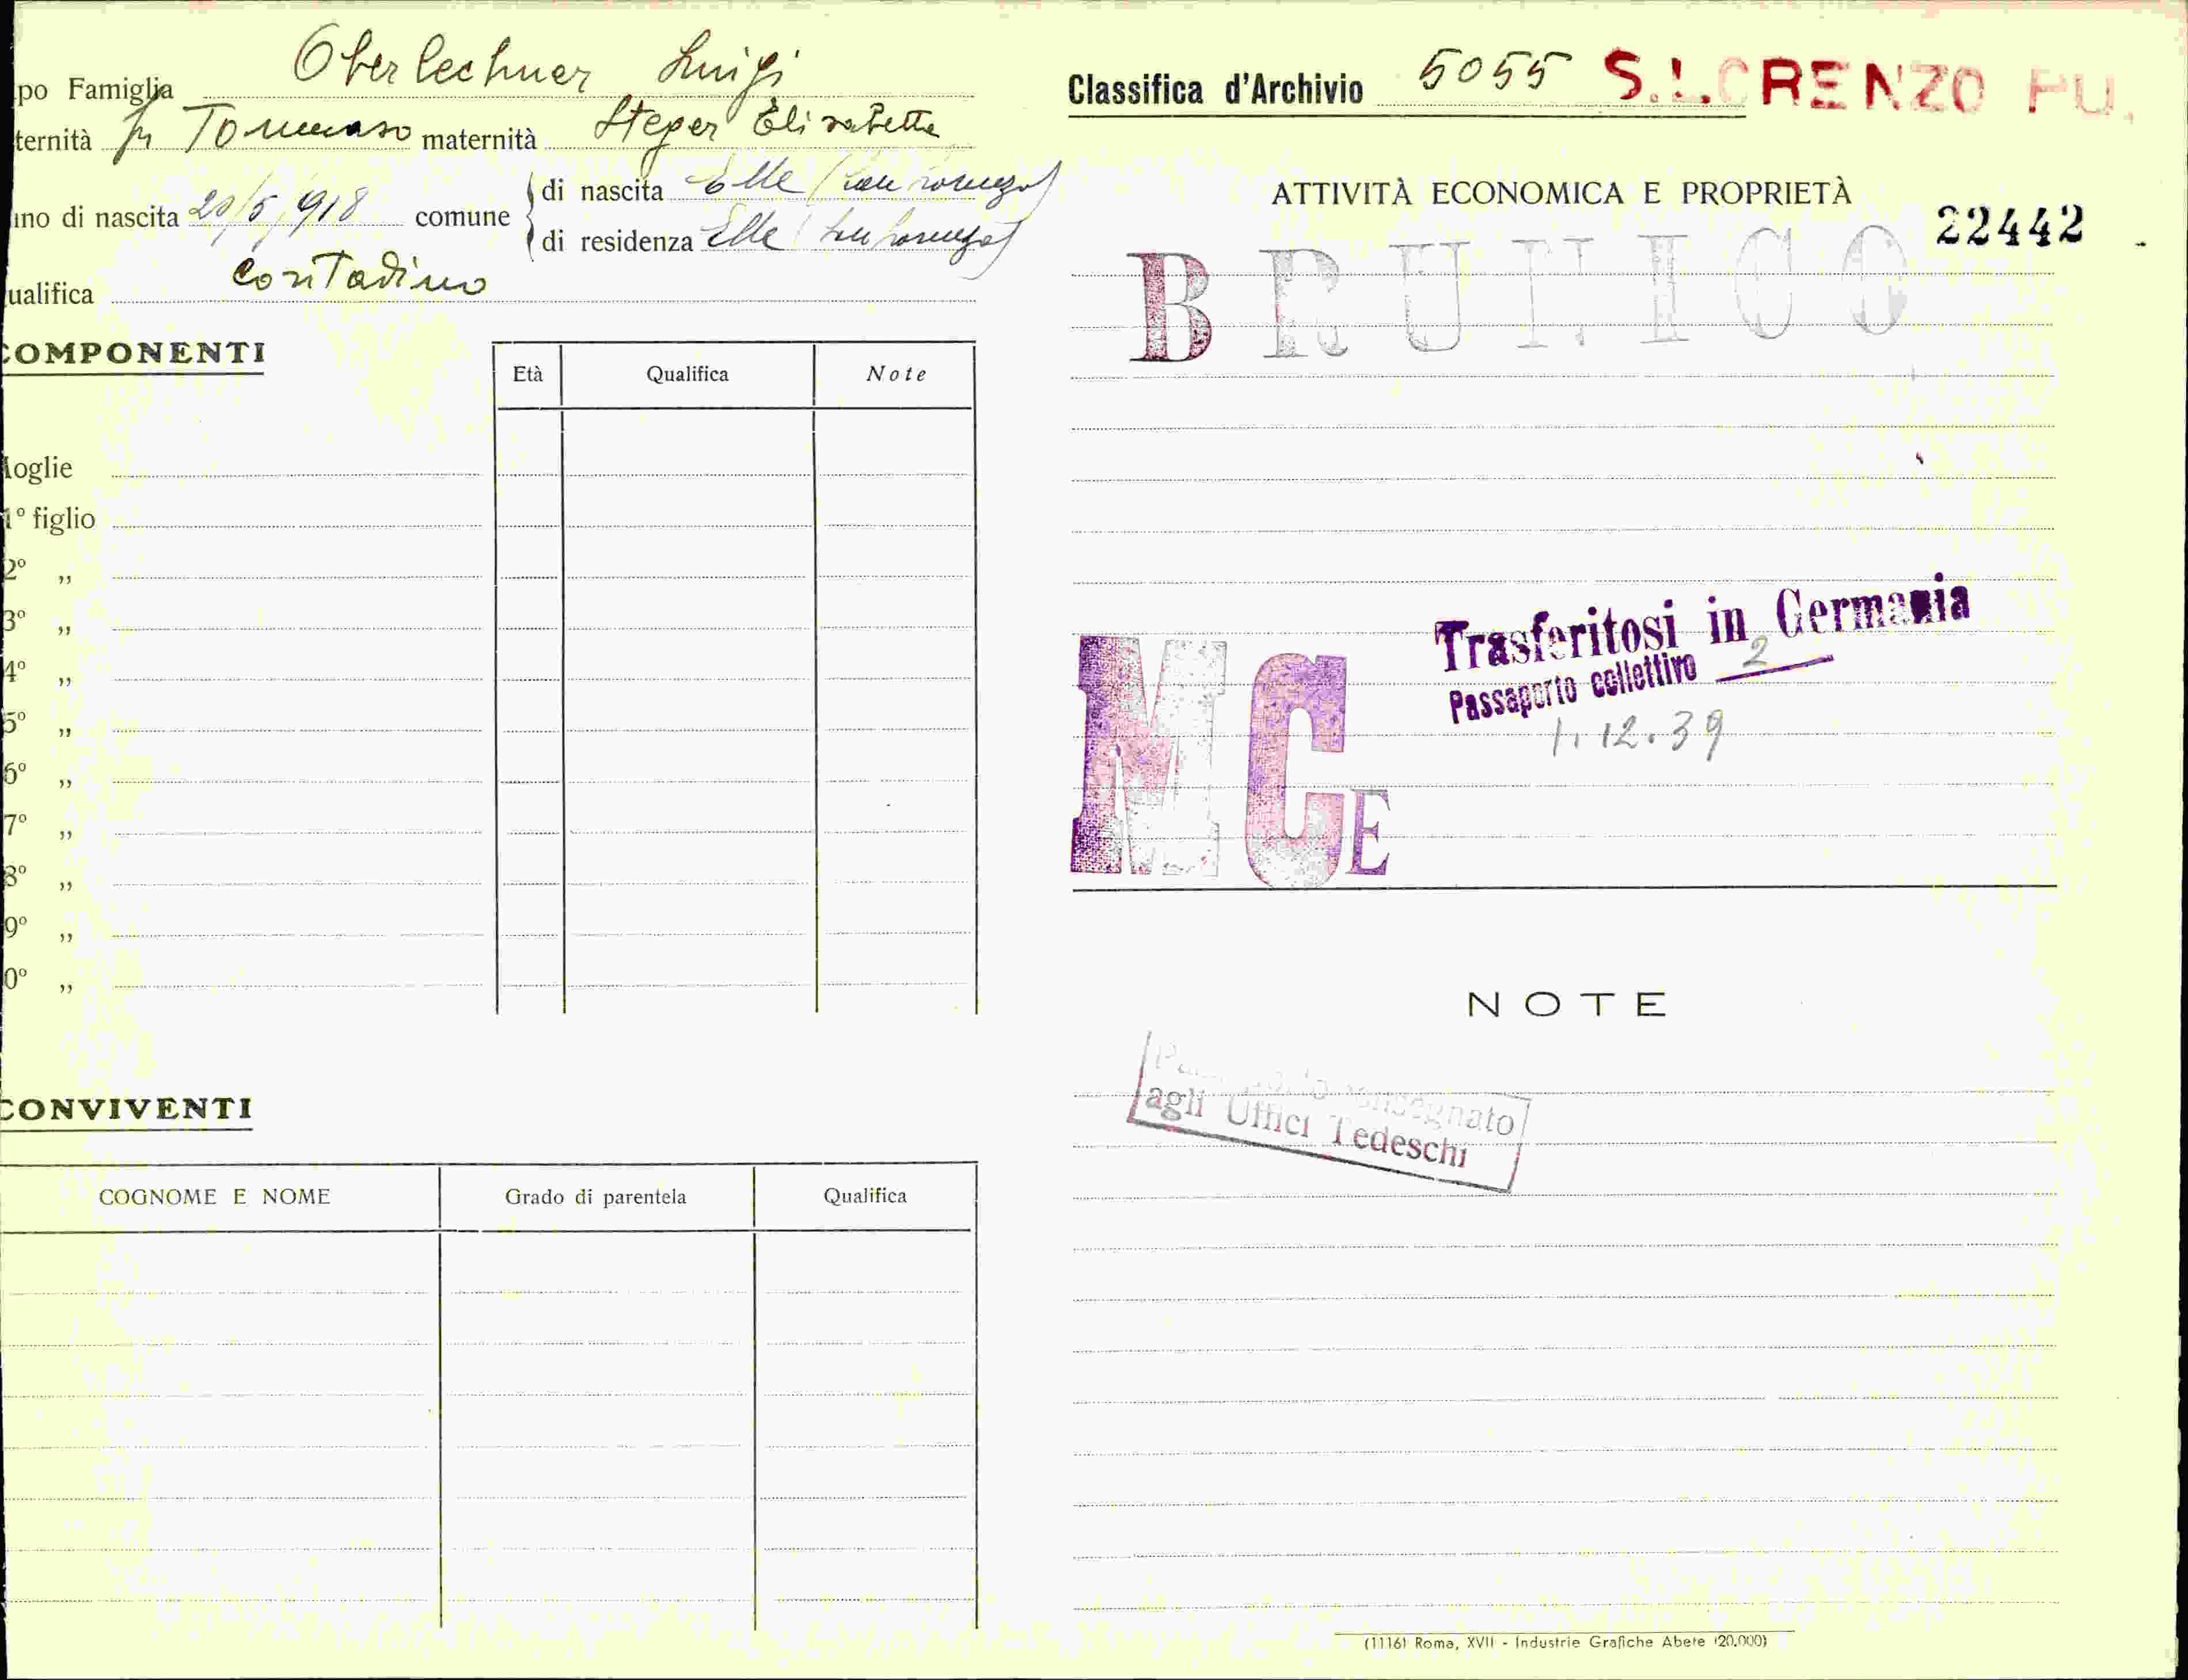 po Famiglia Oberlechner Luigi
ternità fu Tommaso maternità Steger Elisabetta
nno di nascita 20/5/918 comune di nascita Elle (San Lorenzo)
di residenza Elle (San Lorenzo)
ualifica contadino
COMPONENTI
Età Qualifica Note
oglie
1° figlio
2° „
3° „
4° „
5° „
6° „
7° „
8° „
9° „
0° „
CONVIVENTI
COGNOME E NOME Grado di parentela Qualifica
Classifica d'Archivio 5055 S. LORENZO PU.
ATTIVITÀ ECONOMICA E PROPRIETÀ
22442
BRUNICO
Trasferitosi in Germania
Passaporto collettivo 2
1.12.39
MCE
NOTE
Passaporto consegnato
agli Uffici Tedeschi
(1116) Roma, XVII - Industrie Grafiche Abete (20.000)